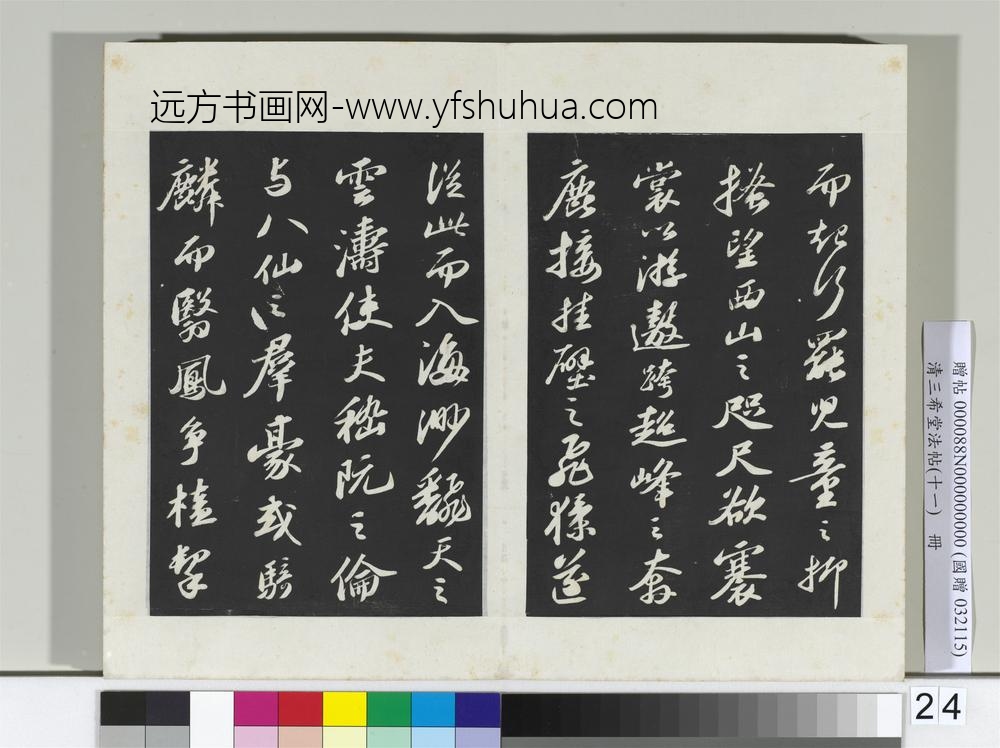 远方书画网-www.yfshuhua.com
而起行罷兒童之抑
搔望西山之咫尺欲褰
裳以游遨跨超峰之奔
鹿接挂壁之飛猱遂
從此而入海渺飜天之
雲濤使夫嵇阮之倫
与八仙之羣豪或騎
麟而翳鳳争榼挈
贈帖 000088N000000000 (國贈 032115)
清三希堂法帖(十一) 冊
24